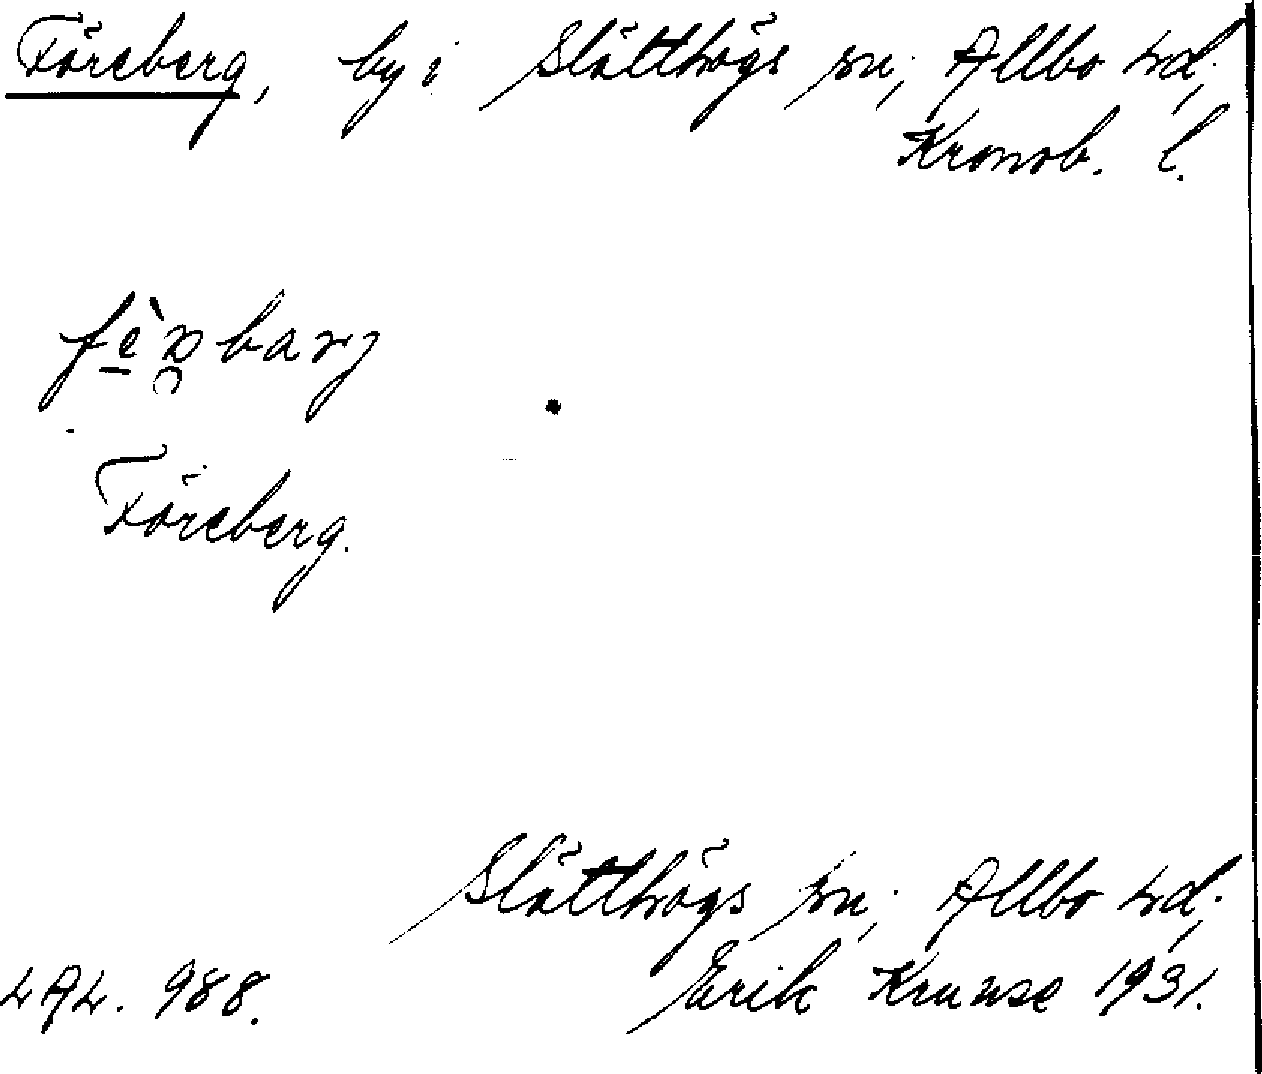 Föreberg, by i Slätthögs sn, Allbo hd,
Kronob. l.
Föreberg.
Slätthögs sn, Allbo hd,
LAL. 988. Erik Kruuse 1931.